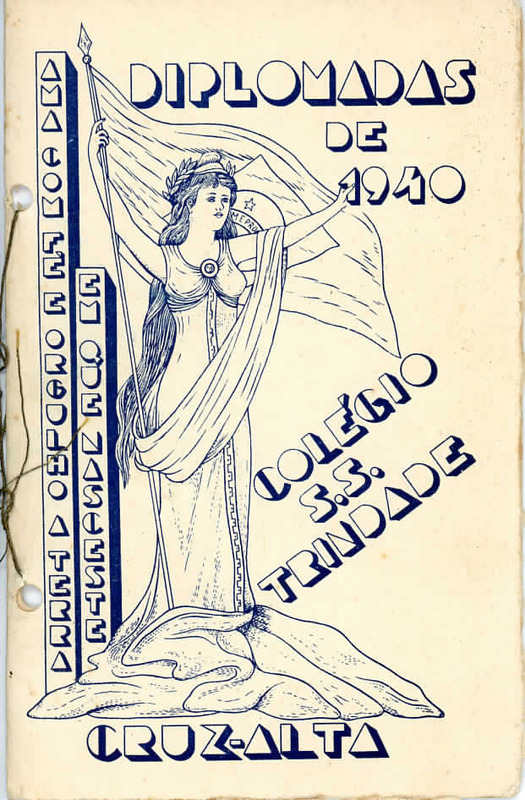 DIPLOMADAS
DE
1940
AMA COM FE E ORGULHO A TERRA
EM QUE NASCESTE
E PRO
COLÉGIO
S.S.
TRINDADE
CRUZ-ALTA